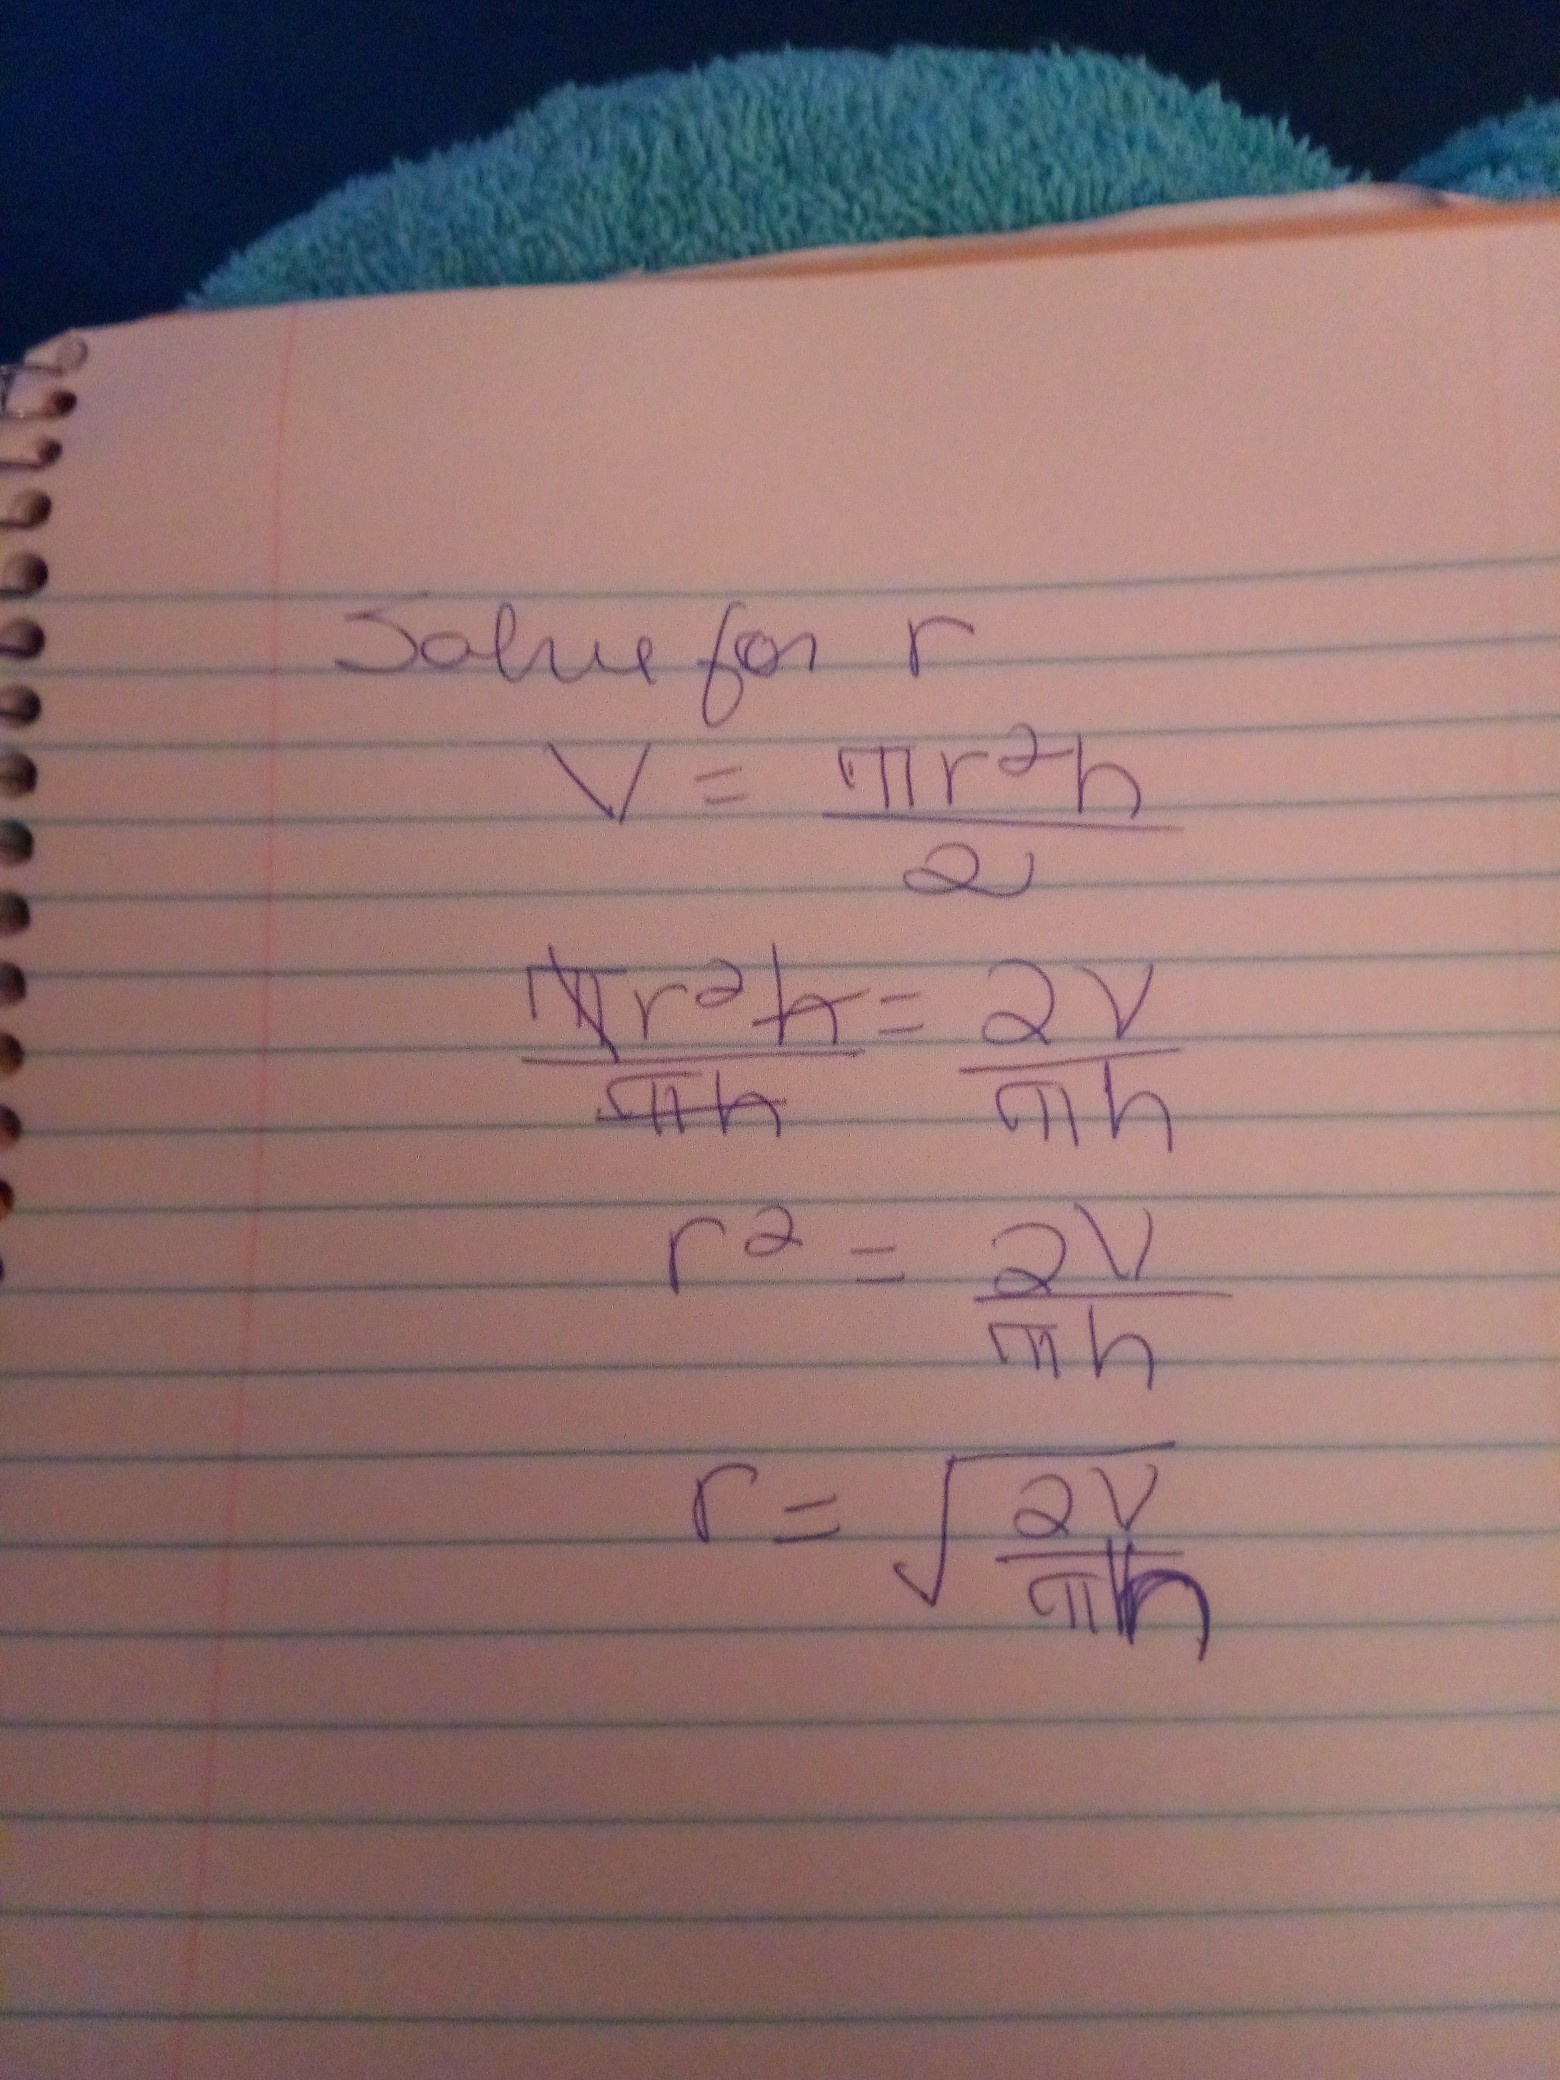 Solve for r
V = πr²h / 2
πr²h / πh = 2V / πh
r² = 2V / πh
r = √(2V / πh)